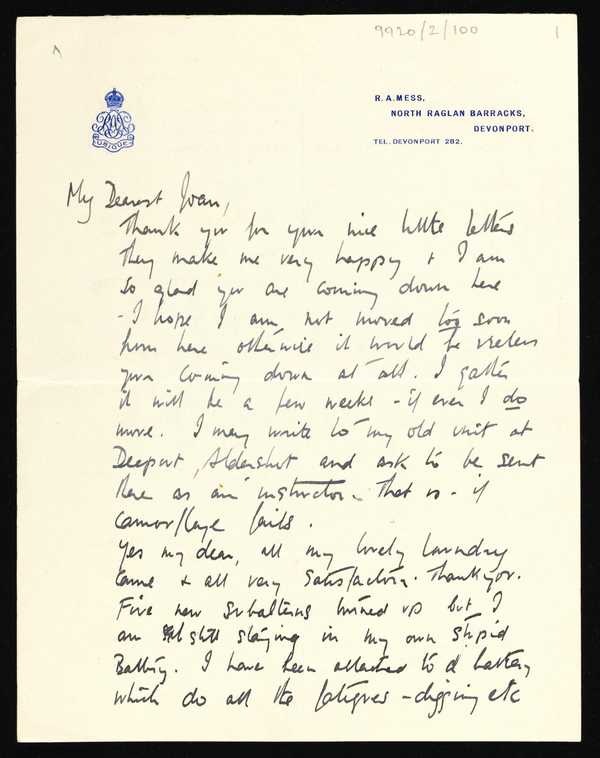 9920/2/100
1
R.A.MESS,
NORTH RAGLAN BARRACKS,
DEVONPORT.
TEL. DEVONPORT 282.
UBIQUE
My Dearest Joan,
Thank you for your nice little letters
They make me very happy + I am
so glad you are coming down here
- I hope I am not moved too soon
from here otherwise it would be useless
your coming down at all. I gather
it will be a few weeks - if ever I do
move. I may write to my old unit at
Deepcut, Aldershot and ask to be sent
there as an instructor. That is - if
Camouflage fails.
Yes my dear, all my lovely laundry
came + all very satisfactory. Thankyou.
Five new subalterns turned up but I
am still staying in my own stupid
Battery. I have been attached to a battery
which do all the fatigues - digging etc